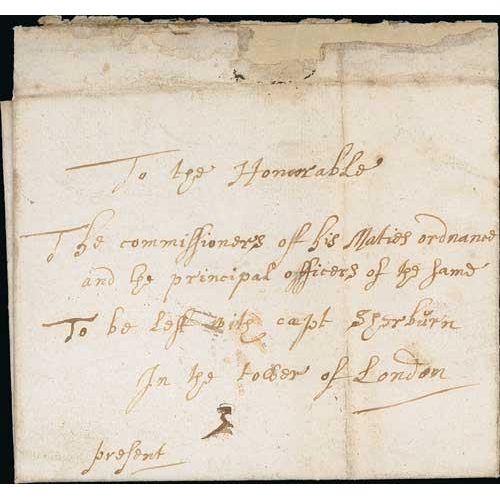 To the Honorable
The commissioners of his Maties ordnance
and the principal officers of the same
To be Left with capt Sherburn
In the tower of London
3
present